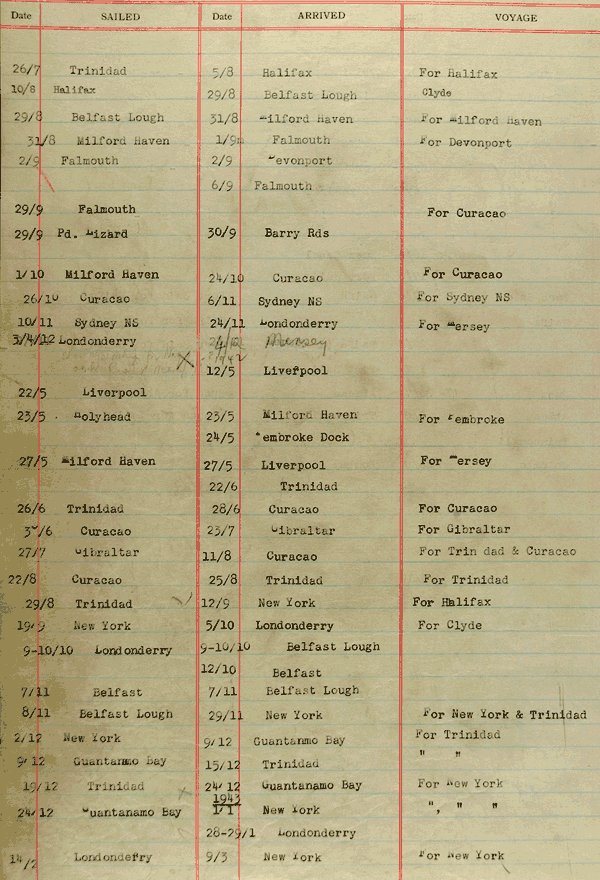 Date SAILED Date ARRIVED VOYAGE
26/7 Trinidad 5/8 Halifax For Halifax
10/8 Halifax 29/8 Belfast Lough Clyde
29/8 Belfast Lough 31/8 Milford Haven For Milford Haven
31/8 Milford Haven 1/9 Falmouth For Devonport
2/9 Falmouth 2/9 Devonport
6/9 Falmouth
29/9 Falmouth For Curacao
29/9 Pd. Lizard 30/9 Barry Rds
1/10 Milford Haven 24/10 Curacao For Curacao
26/10 Curacao 6/11 Sydney NS For Sydney NS
10/11 Sydney NS 24/11 Londonderry For Mersey
3/4/12 Londonderry Mersey
12/5 Liverpool
22/5 Liverpool
23/5 Holyhead 23/5 Milford Haven For Pembroke
24/5 Pembroke Dock
27/5 Milford Haven 27/5 Liverpool For Mersey
22/6 Trinidad
26/6 Trinidad 28/6 Curacao For Curacao
30/6 Curacao 23/7 Gibraltar For Gibraltar
27/7 Gibraltar 11/8 Curacao For Trin dad & Curacao
22/8 Curacao 25/8 Trinidad For Trinidad
29/8 Trinidad 12/9 New York For Halifax
19/9 New York 5/10 Londonderry For Clyde
9-10/10 Londonderry 9-10/10 Belfast Lough
12/10 Belfast
7/11 Belfast 7/11 Belfast Lough
8/11 Belfast Lough 29/11 New York For New York & Trinidad
2/12 New York 9/12 Guantanmo Bay For Trinidad
9/12 Guantanmo Bay 15/12 Trinidad " "
19/12 Trinidad 24/12 Guantanamo Bay For New York
1943
24/12 Guantanamo Bay 1/1 New York ", " "
28-29/1 Londonderry
14/2 Londonderry 9/3 New York For New York